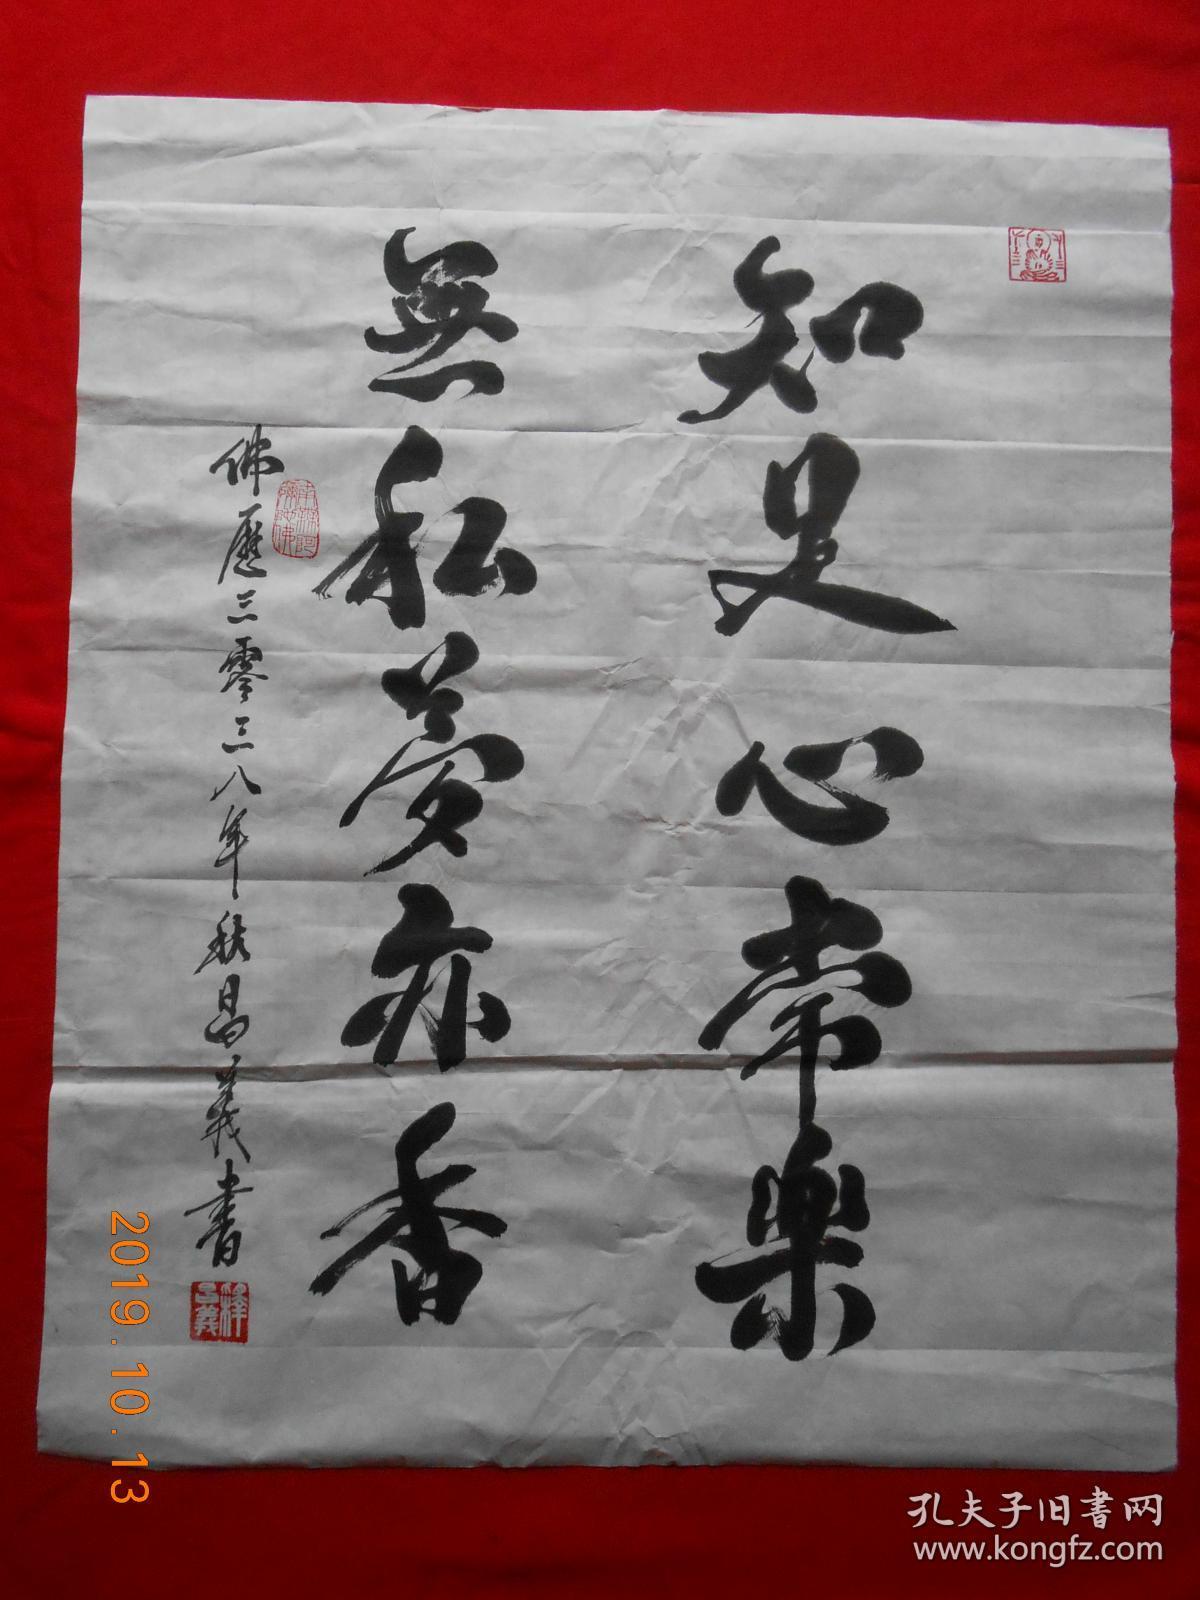 知足心常樂
無私夢亦香
佛歷三零三八年秋昌義書
南無阿彌陀佛
釋昌義
2019.10.13
孔夫子旧书网
www.kongfz.com